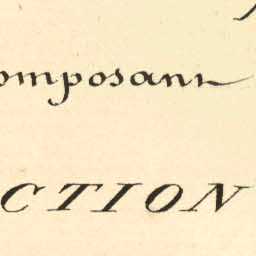 omposant
CTION